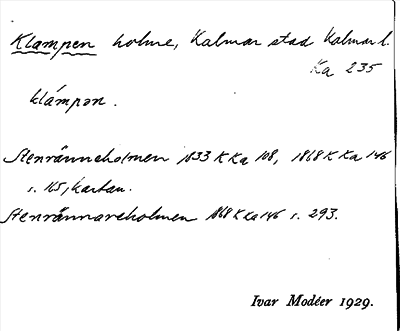 Klampen holme, Kalmar stad Kalmar l.
Ka 235
klámpən.
Stenränneholmen 1833 K Ka 108, 1868 K Ka 146
s. 165, kartan.
Stenrännareholmen 1868 K Ka 146 s. 293.
Ivar Modéer 1929.